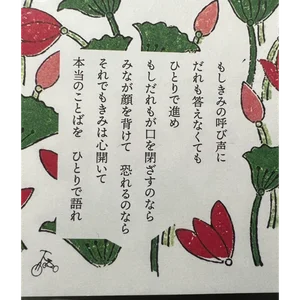 もしきみの呼び声に
だれも答えなくても
ひとりで進め
もしだれもが口を閉ざすのなら
みなが顔を背けて 恐れるのなら
それでもきみは心開いて
本当のことばを ひとりで語れ